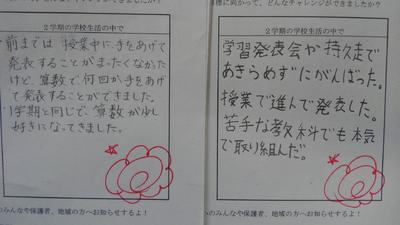 ２学期の学校生活の中で
前までは授業中に手をあげて
発表することがまったくなかった
けど、算数で何回か手をあげ
て発表することができました。
1学期と同じで、算数が少し
好きになってきました。
のみんなや保護者、地域の方へお知らせするよ！
標に向かって、どんなチャレンジができましたか？
２学期の学校生活の中で
学習発表会が持久走で
あきらめずにがんばった。
授業で進んで発表した。
苦手な教科でも本気
で取り組んだ。
のみんなや保護者、地域の方へお知らせするよ！